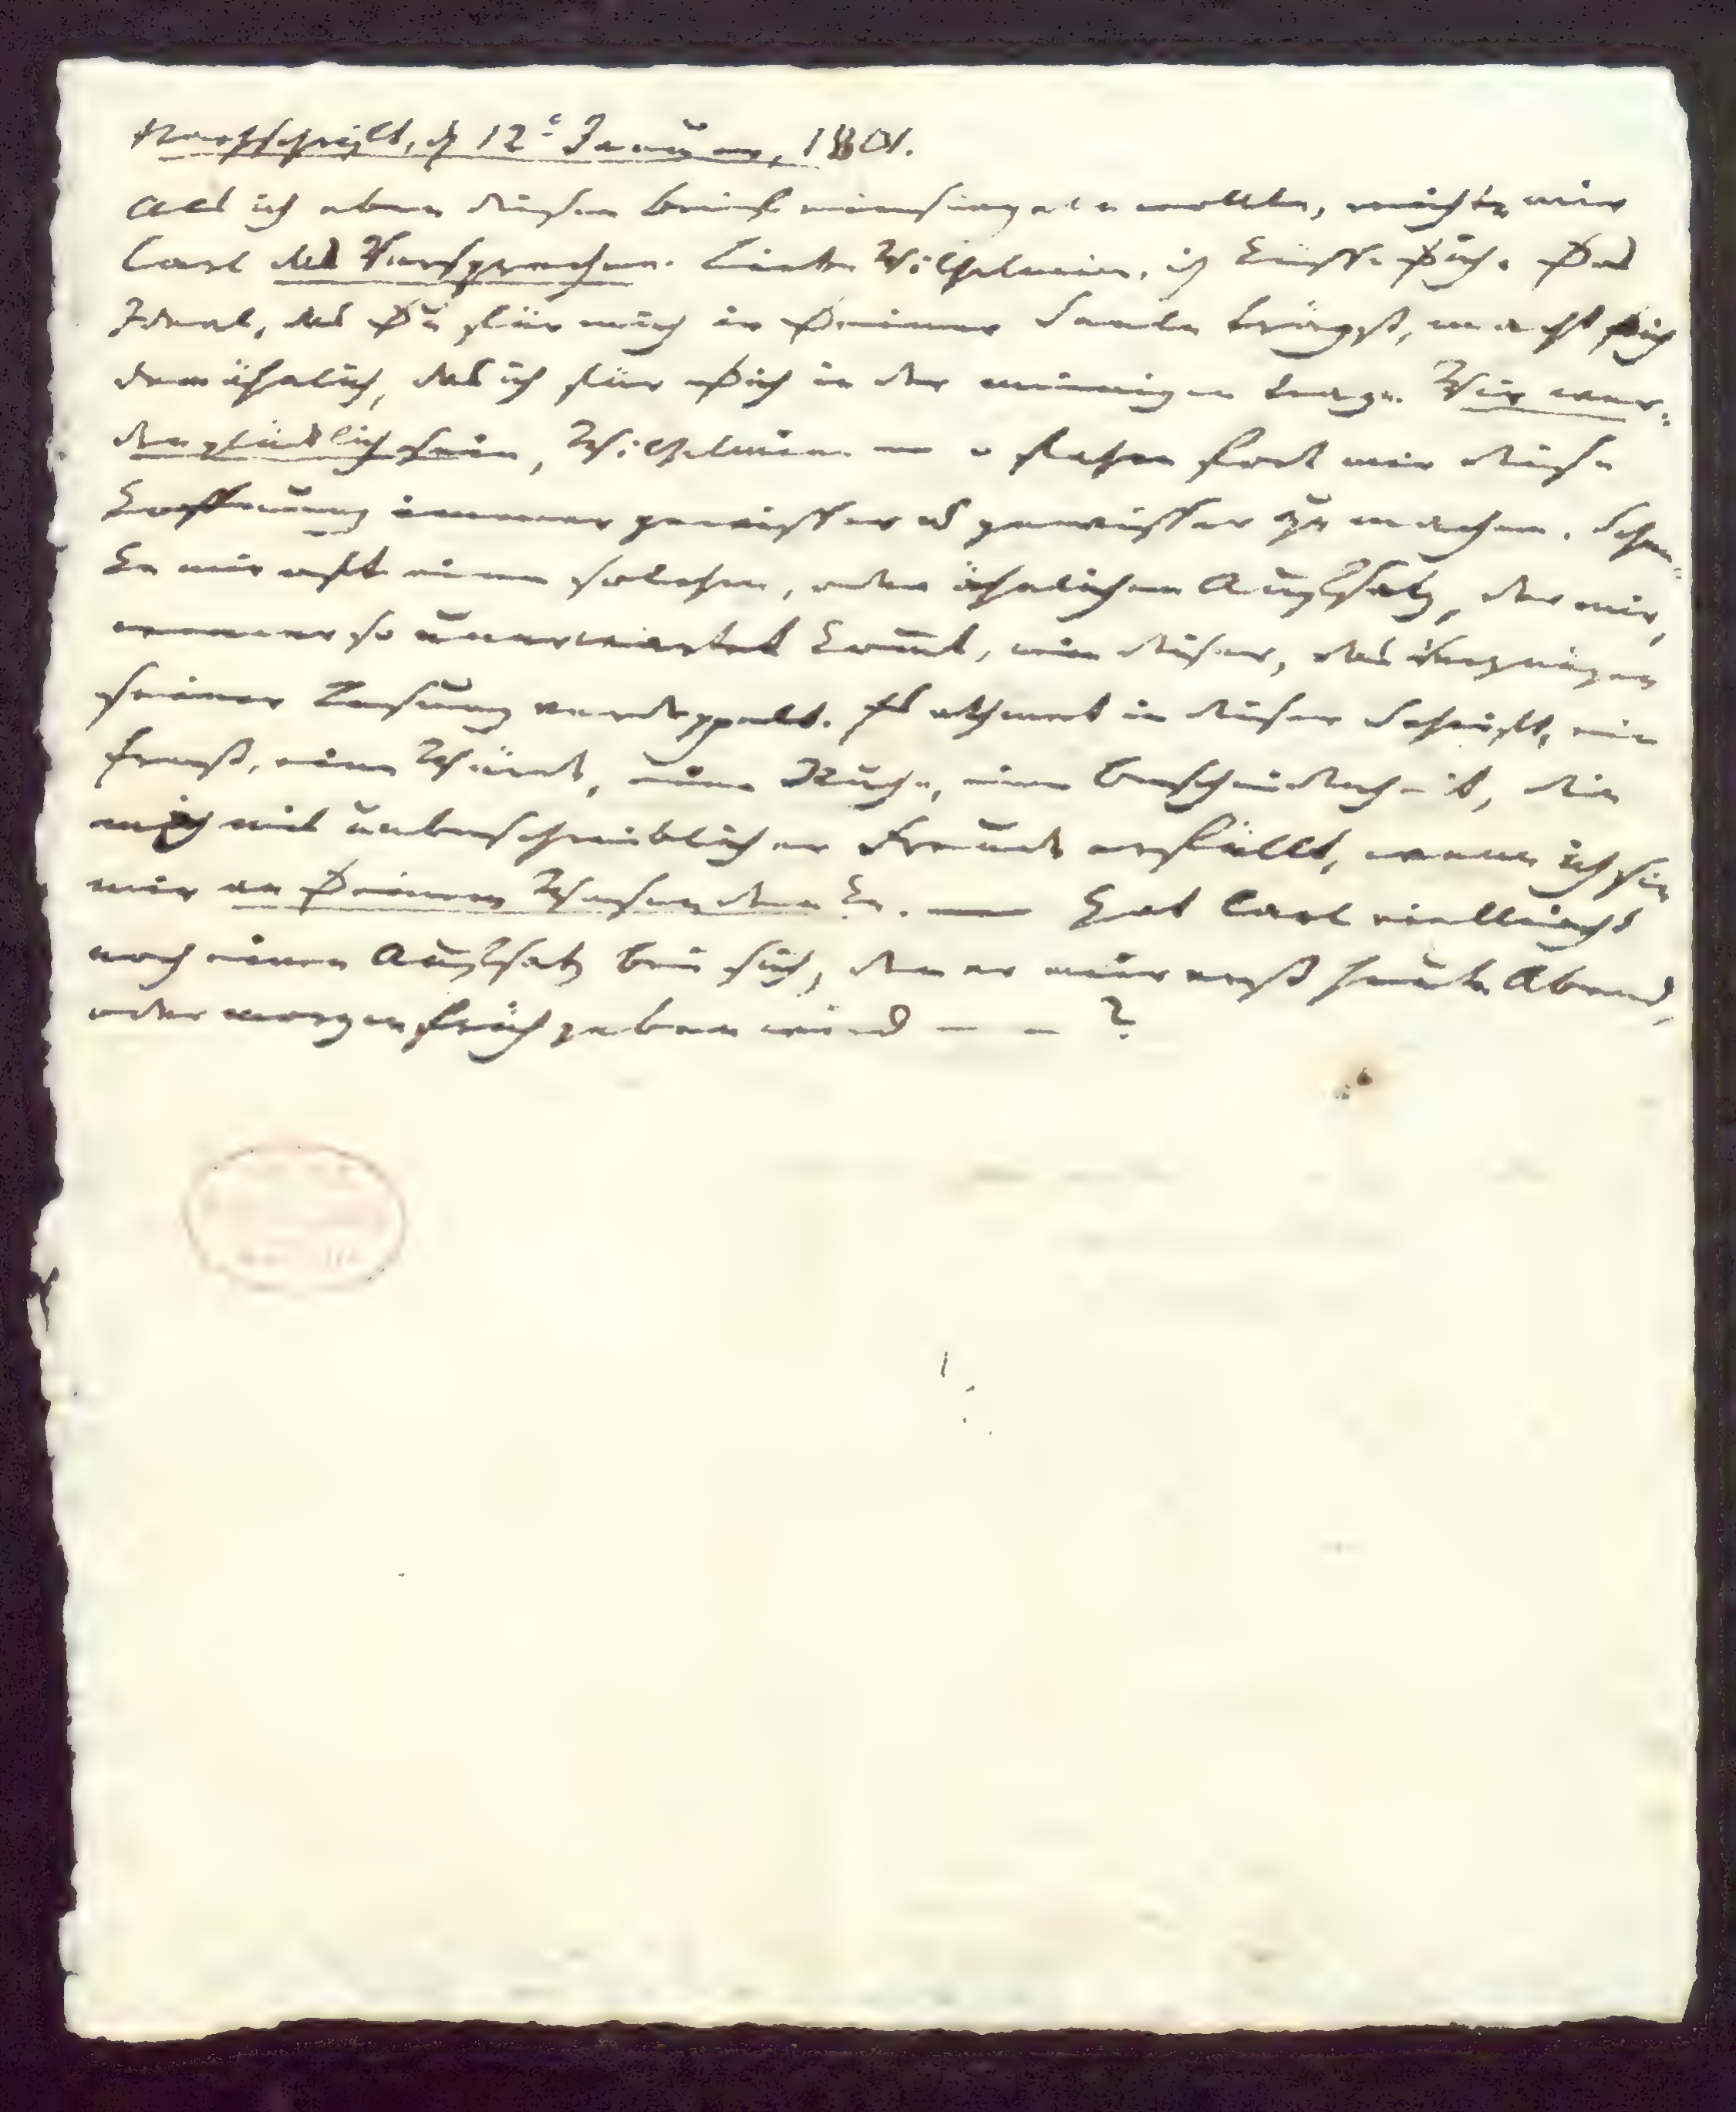 Nachschrift, d 12ᵗ Januar, 1801.
Als ich eben diesen Brief einsiegeln wollte, reichte mir
Carl das Versprechen. Liebe Wilhelmine, ich küsse Dich. Das
Ideal, das Du für mich in Deiner Seele trägst, macht Dich
dem ähnlich, das ich für Dich in der meinigen trage. Wir wer-
den glücklich sein, Wilhelmine — o fahre fort mir diese
Hoffnung immer gewisser u gewisser zu machen. Schen-
ke mir oft einen solchen, oder ähnlichen Aufsatz, der mir,
wenn er so unerwartet komt, wie dieser, das Vergnügen
seiner Lesung verdoppelt. Es athmet in dieser Schrift, ein
Ernst, eine Würde, eine Ruhe, eine Bescheidenheit, die
mich mit unbeschreiblicher Freude erfüllt, wenn ich sie
mir an Deinem Wesen denke. — Hat Carl vielleicht
noch einen Aufsatz bei sich, den er mir erst heute Abend,
oder morgen früh geben wird — — ?